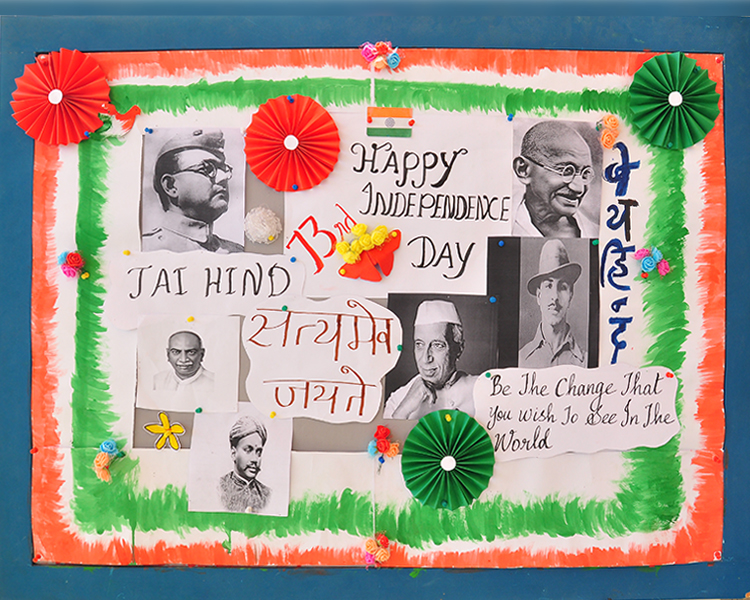 HAPPY
INDEPENDENCE
73rd
DAY
JAI HIND
सत्यमेव
जयते
जय हिन्द
Be The Change That
You Wish To See In The
World